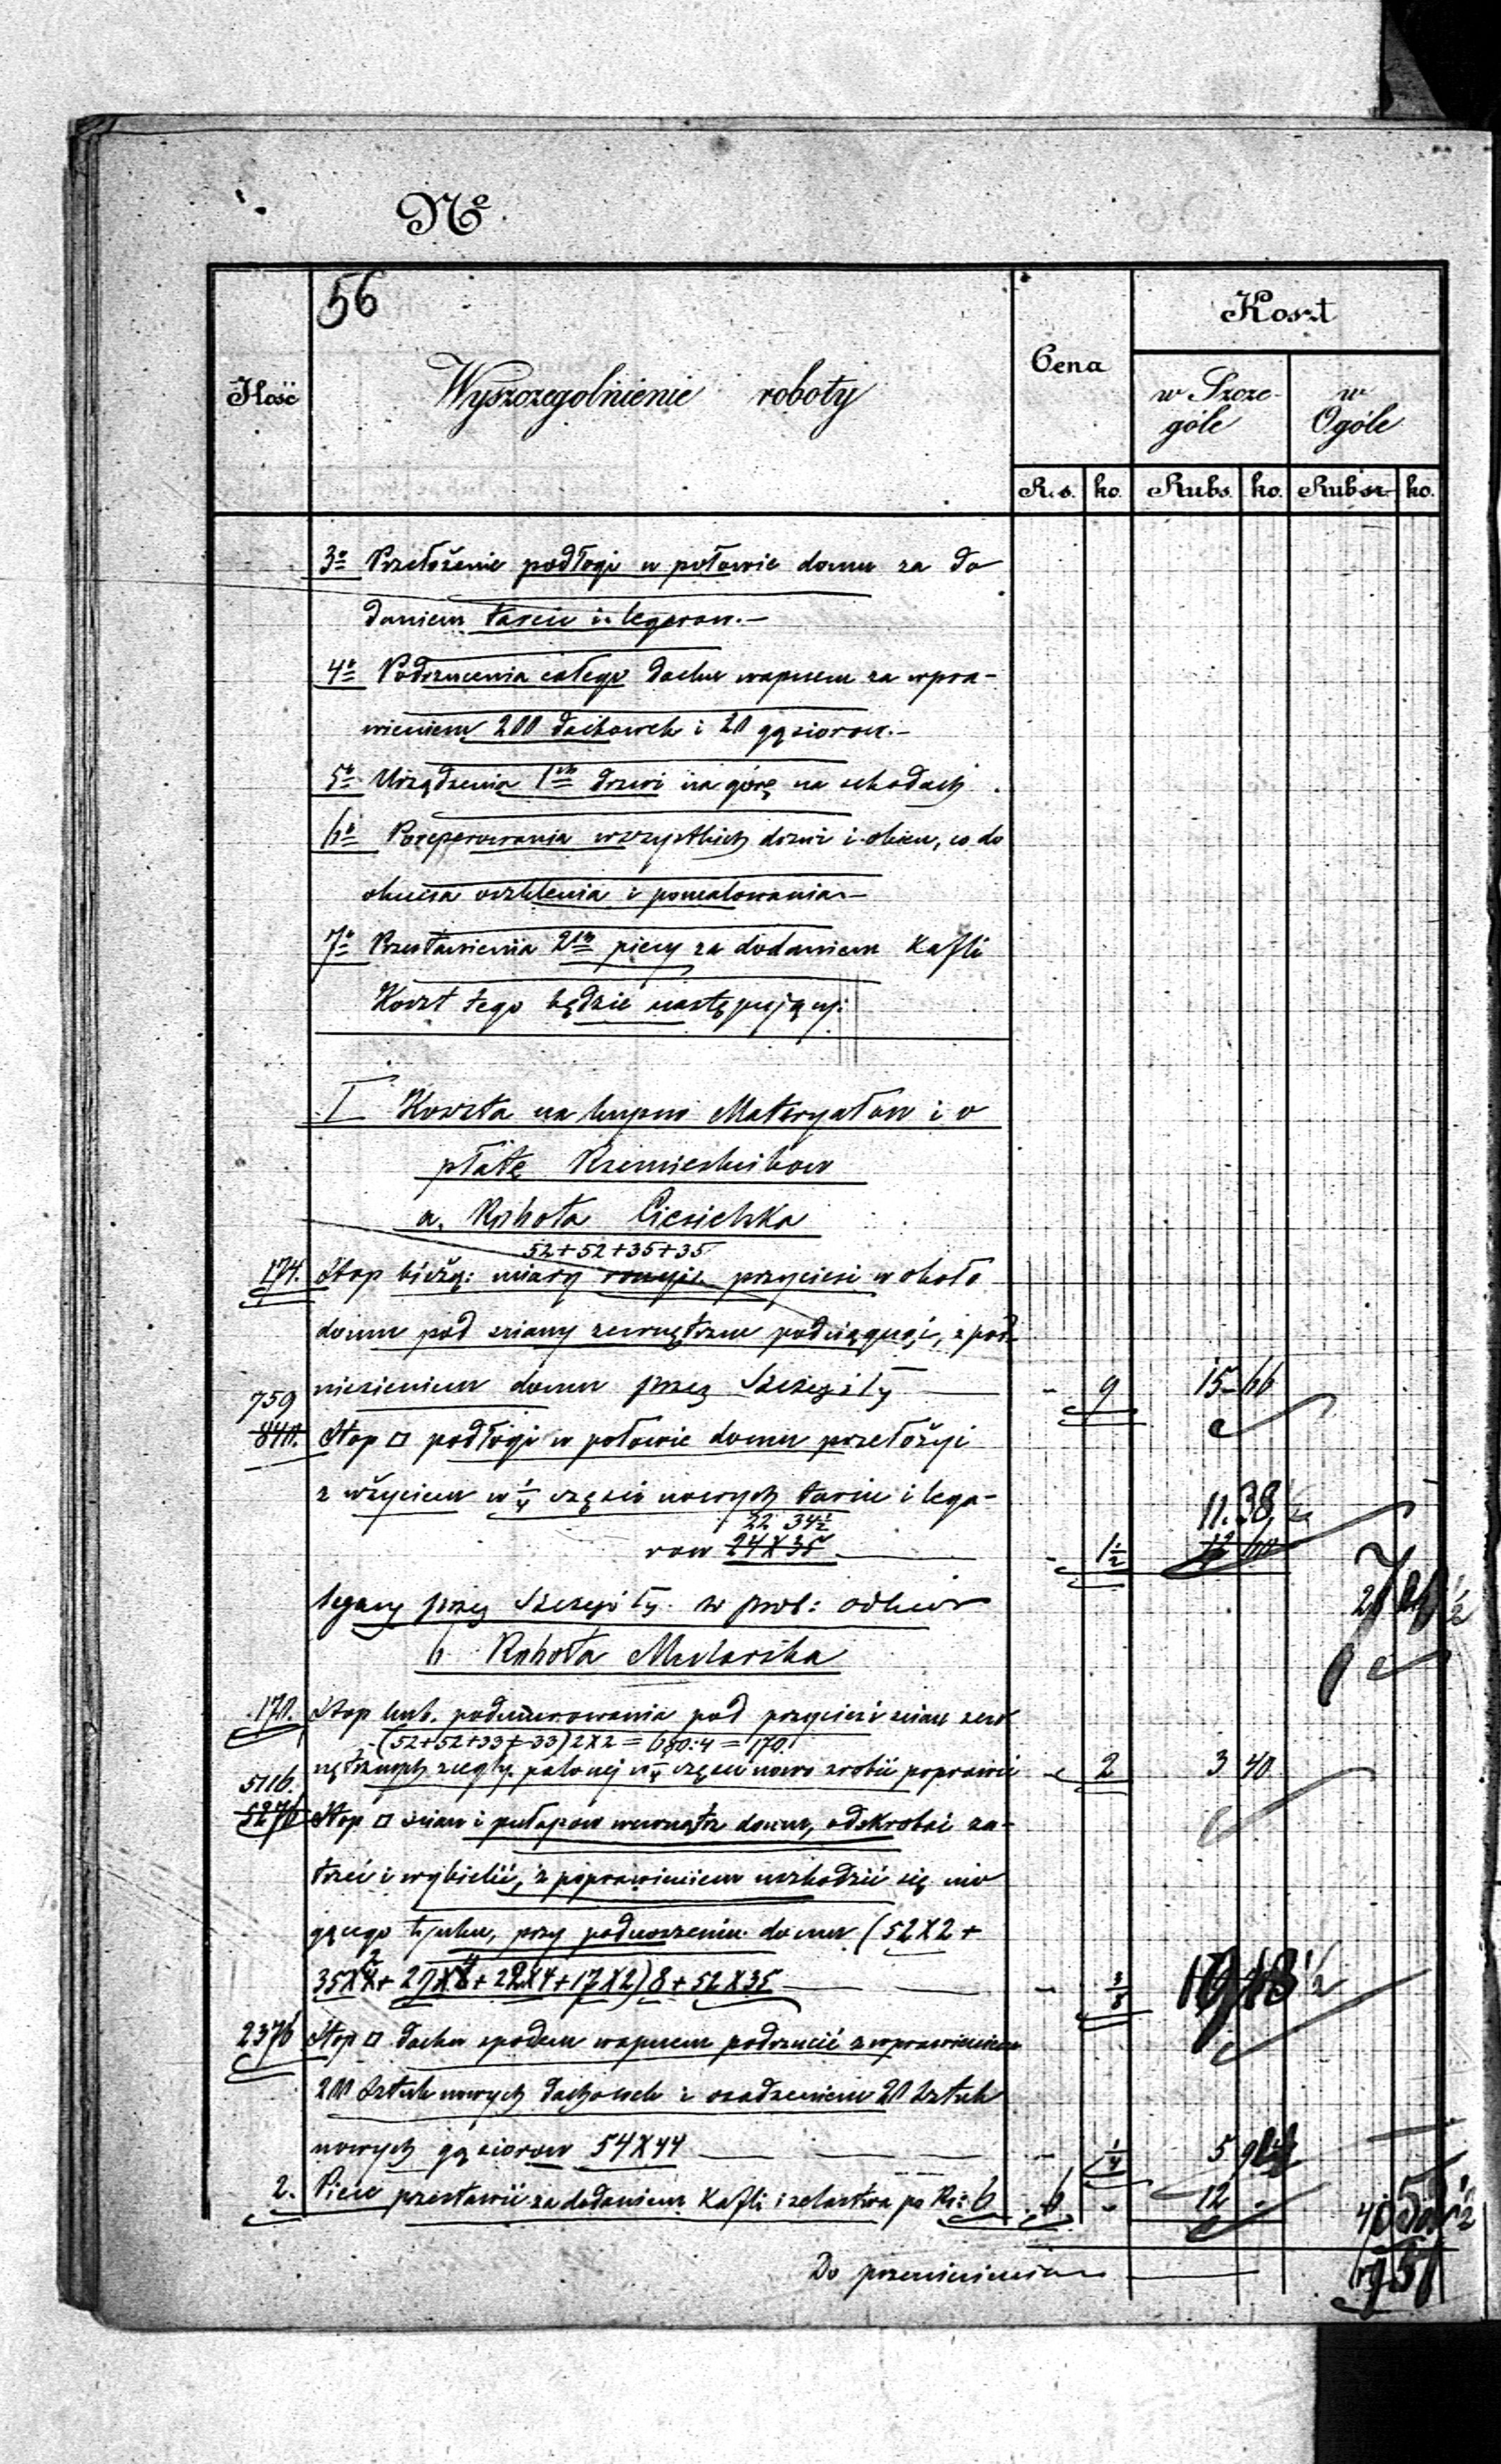 Nº
56
Ilość
Wyszczególnienie roboty
Cena
Koszt
w Szcze-
góle
w
Ogóle
R.s. ko. Rubs. ko. Rubsr ko.
3º Przełożenie podłogi w połowie domu za do
daniem tarcic i legarow.—
4º Podrzucenia całego dachu wapnem za wpra-
wieniem 200 dachowek i 20 gąsiorow.—
5º Urządzenia 1ch drzwi na górę na schodach
6º Poreperowania wszystkich drzwi i okien, co do
okucia oszklenia i pomalowania—
7º Przestawienia 2ch piecy za dodaniem Kafli
Koszt tego będzie następujący:
I Koszta na kupno Materyałow i o
płatę Rzemieslnikow
a. Robota Ciesielska
52+52+35+35
174. Stop bieżą: miary przyciesi w około
domu pod sciany zewnętrzne podciągnąć, z pod
niesieniem domu przez - 9 15-66
759
840. Stop □ podłogi w połowie domu przełożyć
z użyciem w ¼ części nowych tarcic i lega-
22 34½ 11.38
row 24X35 - 1½ 12 60
legary przez
b Robota Mularska
170. Stop kub. podmurowania pod przyciesi scian zew
(52+52+33+33)2X2=680:4=170.
nętrznych cegły palonej w ¼ części nowo zrobić poprawić - 2 3 40
5116.
5276 Stop □ scian i pułapow wewnątrz domu, odskrobać za-
trzeć i wybielić, z poprawieniem uszkodzić się mo
gącego tynku, przy podnoszeniu domu (52X2+
+22X4+17X2)8+52X35 - ⅜
2376 Stop □ dachu spodem wapnem podrzucić z wprawieniem
200 Sztuk nowych dachowek i osadzeniem 20 Sztuk
nowych gąsiorow 54X44 - ¼ 5
2. Piece przestawić za dodaniem Kafli i zelastwa po Rs: 6 6 - 12 -
Do przeniesienia